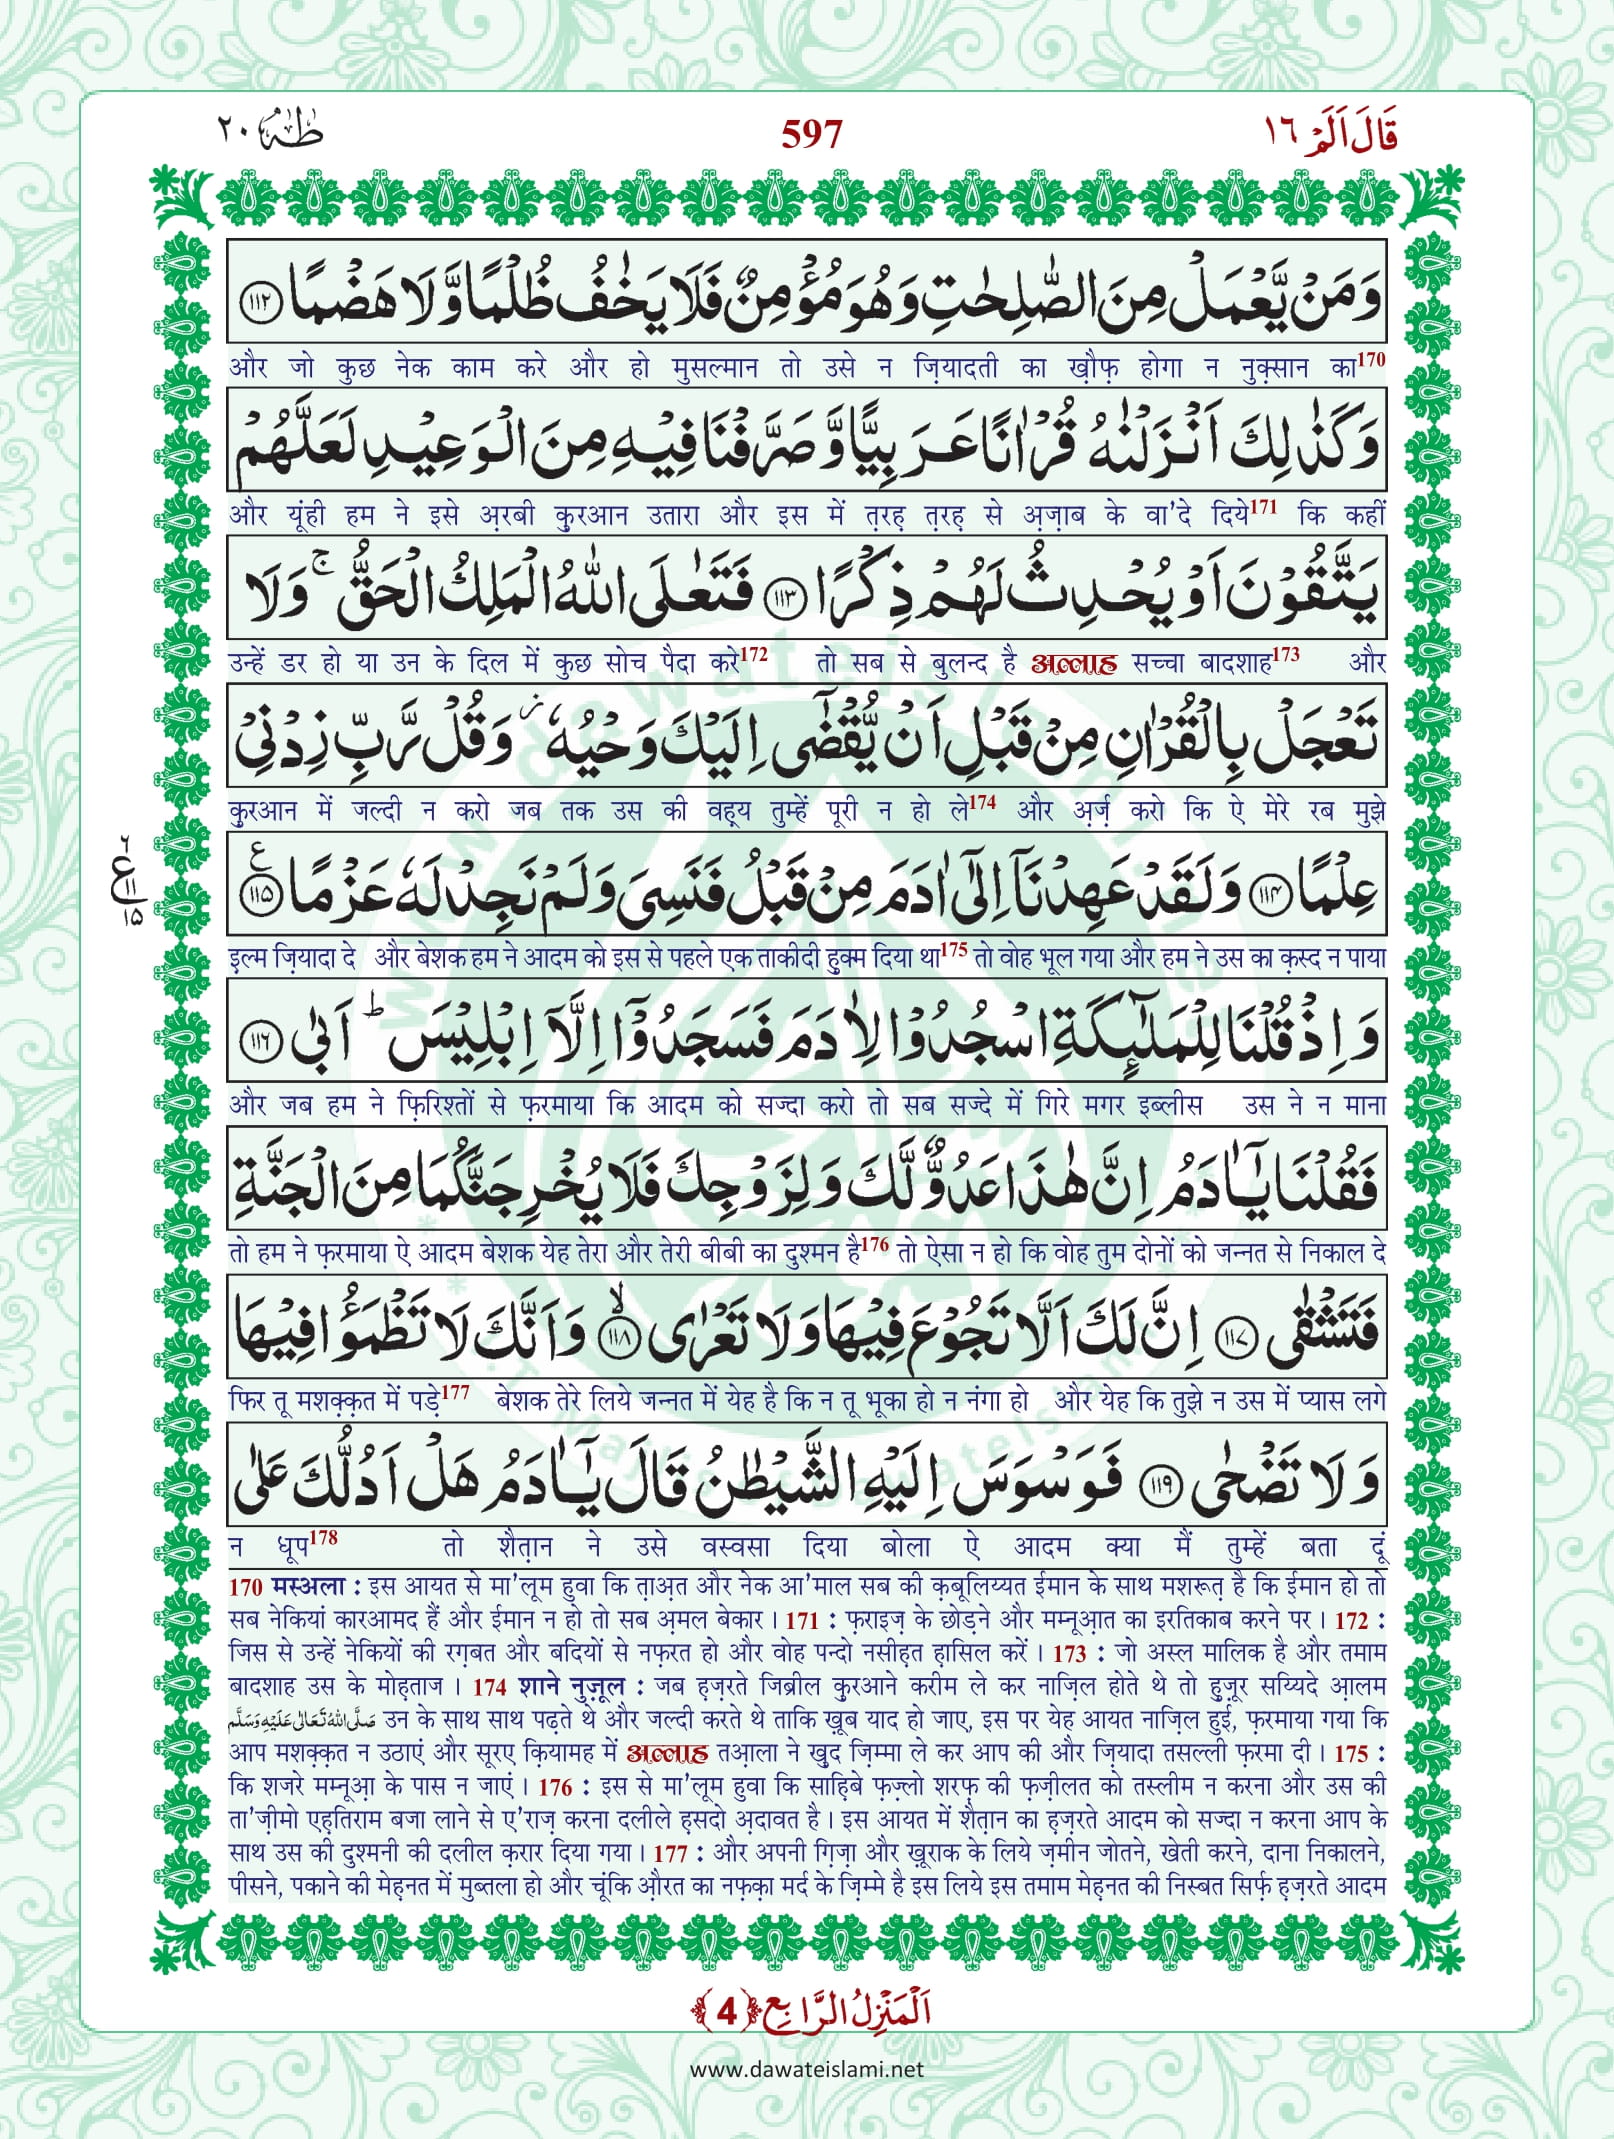 طٰهٰ ٢٠
597
قَالَ اَلَمْ ١٦
وَ مَنْ یَّعْمَلْ مِنَ الصّٰلِحٰتِ وَ هُوَ مُؤْمِنٌ فَلَا یَخٰفُ ظُلْمًا وَّ لَا هَضْمًا ﴿۱۱۲﴾
और जो कुछ नेक काम करे और हो मुसल्मान तो उसे न ज़ियादती का ख़ौफ़ होगा न नुक़्सान का170
وَ كَذٰلِكَ اَنْزَلْنٰهُ قُرْاٰنًا عَرَبِیًّا وَّ صَرَّفْنَا فِیْهِ مِنَ الْوَعِیْدِ لَعَلَّهُمْ
और यूंही हम ने इसे अ़रबी क़ुरआन उतारा और इस में त़रह़ त़रह़ से अ़ज़ाब के वा'दे दिये171 कि कहीं
یَتَّقُوْنَ اَوْ یُحْدِثُ لَهُمْ ذِكْرًا ﴿۱۱۳﴾ فَتَعٰلَى اللّٰهُ الْمَلِكُ الْحَقُّ ۚ وَ لَا
उन्हें डर हो या उन के दिल में कुछ सोच पैदा करे172 तो सब से बुलन्द है अल्लाह सच्चा बादशाह173 और
تَعْجَلْ بِالْقُرْاٰنِ مِنْ قَبْلِ اَنْ یُّقْضٰۤى اِلَیْكَ وَحْیُهٗ ؗ وَ قُلْ رَّبِّ زِدْنِیْ
क़ुरआन में जल्दी न करो जब तक उस की वह़्य तुम्हें पूरी न हो ले174 और अ़र्ज़ करो कि ऐ मेरे रब मुझे
عِلْمًا ﴿۱۱۴﴾ وَ لَقَدْ عَهِدْنَاۤ اِلٰۤى اٰدَمَ مِنْ قَبْلُ فَنَسِیَ وَ لَمْ نَجِدْ لَهٗ عَزْمًا ﴿۱۱۵﴾ ع
इ़ल्म ज़ियादा दे और बेशक हम ने आदम को इस से पहले एक ताकीदी हु़क्म दिया था175 तो वोह भूल गया और हम ने उस का क़स्द न पाया
وَ اِذْ قُلْنَا لِلْمَلٰٓىٕكَةِ اسْجُدُوْا لِاٰدَمَ فَسَجَدُوْۤا اِلَّاۤ اِبْلِیْسَ ؕ اَبٰى ﴿۱۱۶﴾
और जब हम ने फ़िरिश्तों से फ़रमाया कि आदम को सज्दा करो तो सब सज्दे में गिरे मगर इब्लीस उस ने न माना
فَقُلْنَا یٰۤاٰدَمُ اِنَّ هٰذَا عَدُوٌّ لَّكَ وَ لِزَوْجِكَ فَلَا یُخْرِجَنَّكُمَا مِنَ الْجَنَّةِ
तो हम ने फ़रमाया ऐ आदम बेशक येह तेरा और तेरी बीबी का दुश्मन है176 तो ऐसा न हो कि वोह तुम दोनों को जन्नत से निकाल दे
فَتَشْقٰى ﴿۱۱۷﴾ اِنَّ لَكَ اَلَّا تَجُوْعَ فِیْهَا وَ لَا تَعْرٰى ﴿۱۱۸﴾ۙ وَ اَنَّكَ لَا تَظْمَؤُا فِیْهَا
फिर तू मशक़्क़त में पड़े177 बेशक तेरे लिये जन्नत में येह है कि न तू भूका हो न नंगा हो और येह कि तुझे न उस में प्यास लगे
وَ لَا تَضْحٰى ﴿۱۱۹﴾ فَوَسْوَسَ اِلَیْهِ الشَّیْطٰنُ قَالَ یٰۤاٰدَمُ هَلْ اَدُلُّكَ عَلٰى
न धूप178 तो शैत़ान ने उसे वस्वसा दिया बोला ऐ आदम क्या मैं तुम्हें बता दूं
170 मस्अला : इस आयत से मा'लूम हुवा कि त़ाअ़त और नेक आ'माल सब की क़बूलिय्यत ईमान के साथ मशरूत़ है कि ईमान हो तो
सब नेकियां कारआमद हैं और ईमान न हो तो सब अ़मल बेकार । 171 : फ़राइज़ के छोड़ने और मम्नूआ़त का इरतिकाब करने पर । 172 :
जिस से उन्हें नेकियों की रग़बत और बदियों से नफ़रत हो और वोह पन्दो नसीह़त ह़ासिल करें । 173 : जो अस्ल मालिक है और तमाम
बादशाह उस के मोह़ताज । 174 शाने नुज़ूल : जब ह़ज़रते जिब्रील क़ुरआने करीम ले कर नाज़िल होते थे तो हु़ज़ूर सय्यिदे आ़लम
صَلَّى اللهُ تَعَالٰى عَلَيْهِ وَسَلَّم उन के साथ साथ पढ़ते थे और जल्दी करते थे ताकि ख़ूब याद हो जाए, इस पर येह आयत नाज़िल हुई, फ़रमाया गया कि
आप मशक़्क़त न उठाएं और सूरए क़ियामह में अल्लाह तआ़ला ने ख़ुद ज़िम्मा ले कर आप की और ज़ियादा तसल्ली फ़रमा दी । 175 :
कि शजरे मम्नूआ़ के पास न जाएं । 176 : इस से मा'लूम हुवा कि साह़िबे फ़ज़्लो शरफ़ की फ़ज़ीलत को तस्लीम न करना और उस की
ता'ज़ीमो एह़तिराम बजा लाने से ए'राज़ करना दलीले ह़सदो अ़दावत है । इस आयत में शैत़ान का ह़ज़रते आदम को सज्दा न करना आप के
साथ उस की दुश्मनी की दलील क़रार दिया गया । 177 : और अपनी ग़िज़ा और ख़ूराक के लिये ज़मीन जोतने, खेती करने, दाना निकालने,
पीसने, पकाने की मेह़नत में मुब्तला हो और चूंकि औ़रत का नफ़क़ा मर्द के ज़िम्मे है इस लिये इस तमाम मेह़नत की निस्बत सिर्फ़ ह़ज़रते आदम
اَلْمَنْزِلُ الرَّابِع ﴿4﴾
www.dawateislami.net